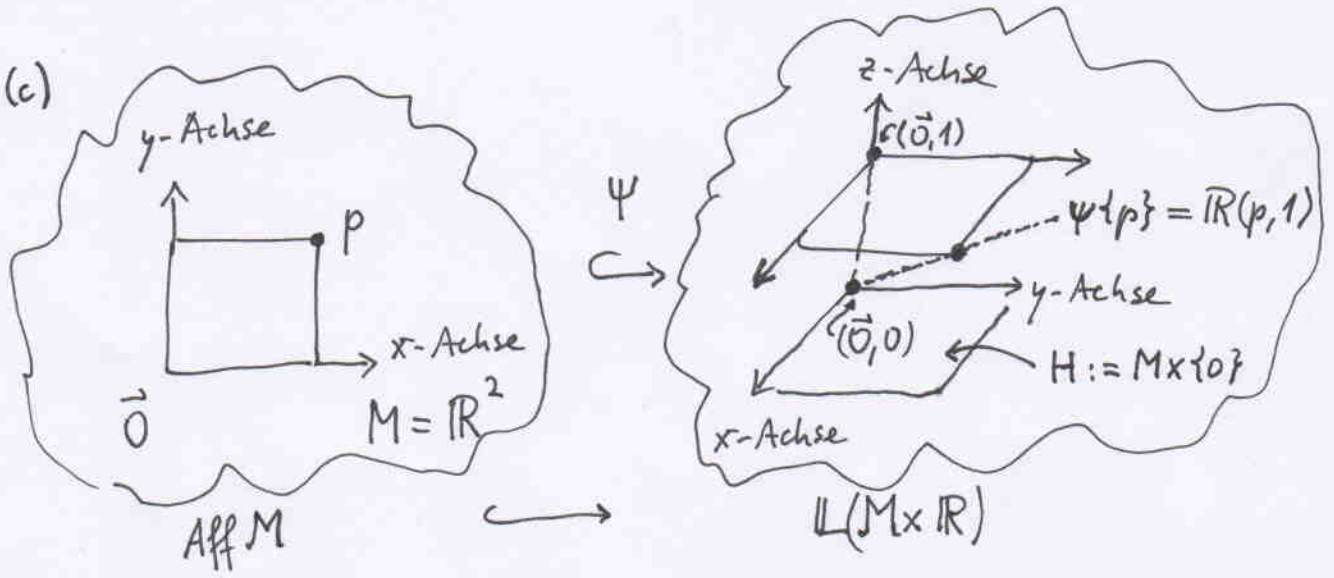 (c)
y-Achse
p
x-Achse
0⃗
M = ℝ²
Aff M
Ψ
z-Achse
(0⃗,1)
Ψ{p} = ℝ(p,1)
y-Achse
(0⃗,0)
H := M×{0}
x-Achse
𝕃(M×ℝ)